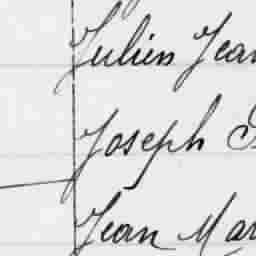 Julien Jean
Joseph
Jean Mar